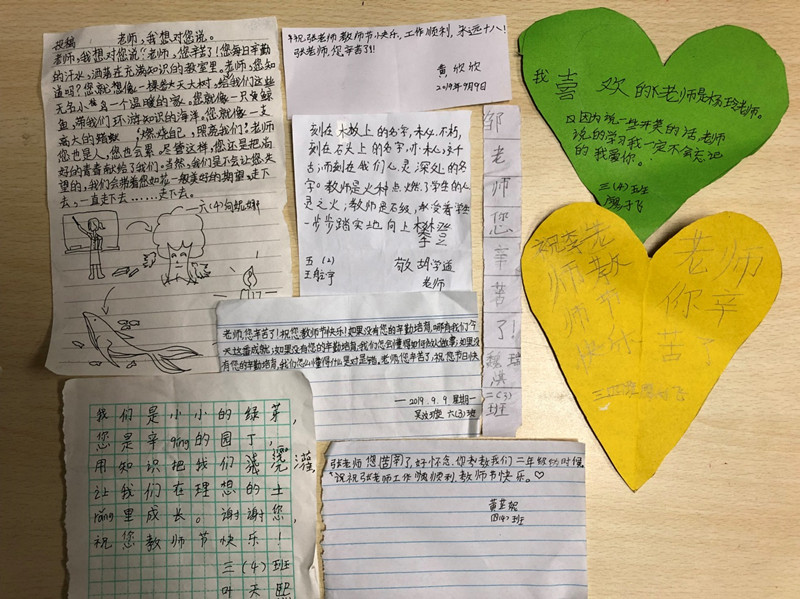 投稿 老师,我想对您说。
老师,我想对您说:"老师,您辛苦了!您每日辛勤
的汗水,洒落在充满知识的教室里。老师,您知
道吗?您就想像一棵参天大大树,给我们这些
无名小鸟一个温暖的家。您就像一只黄鲸
鱼,带我们环游知识的海洋。您就像一支
高大的蜡蚀,燃烧自己,照亮我们!老师
您也是人,您也会累。尽管这样,您还是把尚
好的青春献给了我们。当然,我们是不会让您失
望的,我们会带着您如花一般美好的期望。走下
去、一直走下去……走下去。
祝张老师教师节快乐,工作顺利,永远十八!
张老师,您辛苦了!!
黄欣欣
2019年9月9日
刻在木板上的名字,未必不朽,
刻在石头上的名字,亦未必永千
古;而刻在我们心灵深处的名
字。教师是火种点燃了学生的心
灵之火;教师是石级,承受着学生
一步步踏实地向上攀登
五(2)
敬胡学道
老师
邹老师您辛苦了!
二(3)班
我喜欢的老师是杨玲老师。
因为说一些开英的话,老师
说的学习我一定不会忘记
的我爱你。!
三(4)班
老师您辛苦了!祝您教师节快乐!如果没有您的辛勤培育,哪有我们今
天这番成就;如果没有您的辛勤培育,我们怎会懂得如何做人做事;如果没
有您的辛勤培育,我们怎么懂得什么是对是错。老师,您辛苦了,祝您节日快
—2019.9.9 星期一
六(3)班
我们是小小的绿芽,
您是辛qíng的园丁,
用知识把我们浇灌
让我们在理想的土
rǎng里成长。谢谢您,
祝您教师节快乐!
三(4)班
叶天熙
张老师您苦辛了,好怀念你教我们二年级的时候。
祝张老师工作顺利,教师节快乐。♡
四(4)班
老师
你辛
苦了